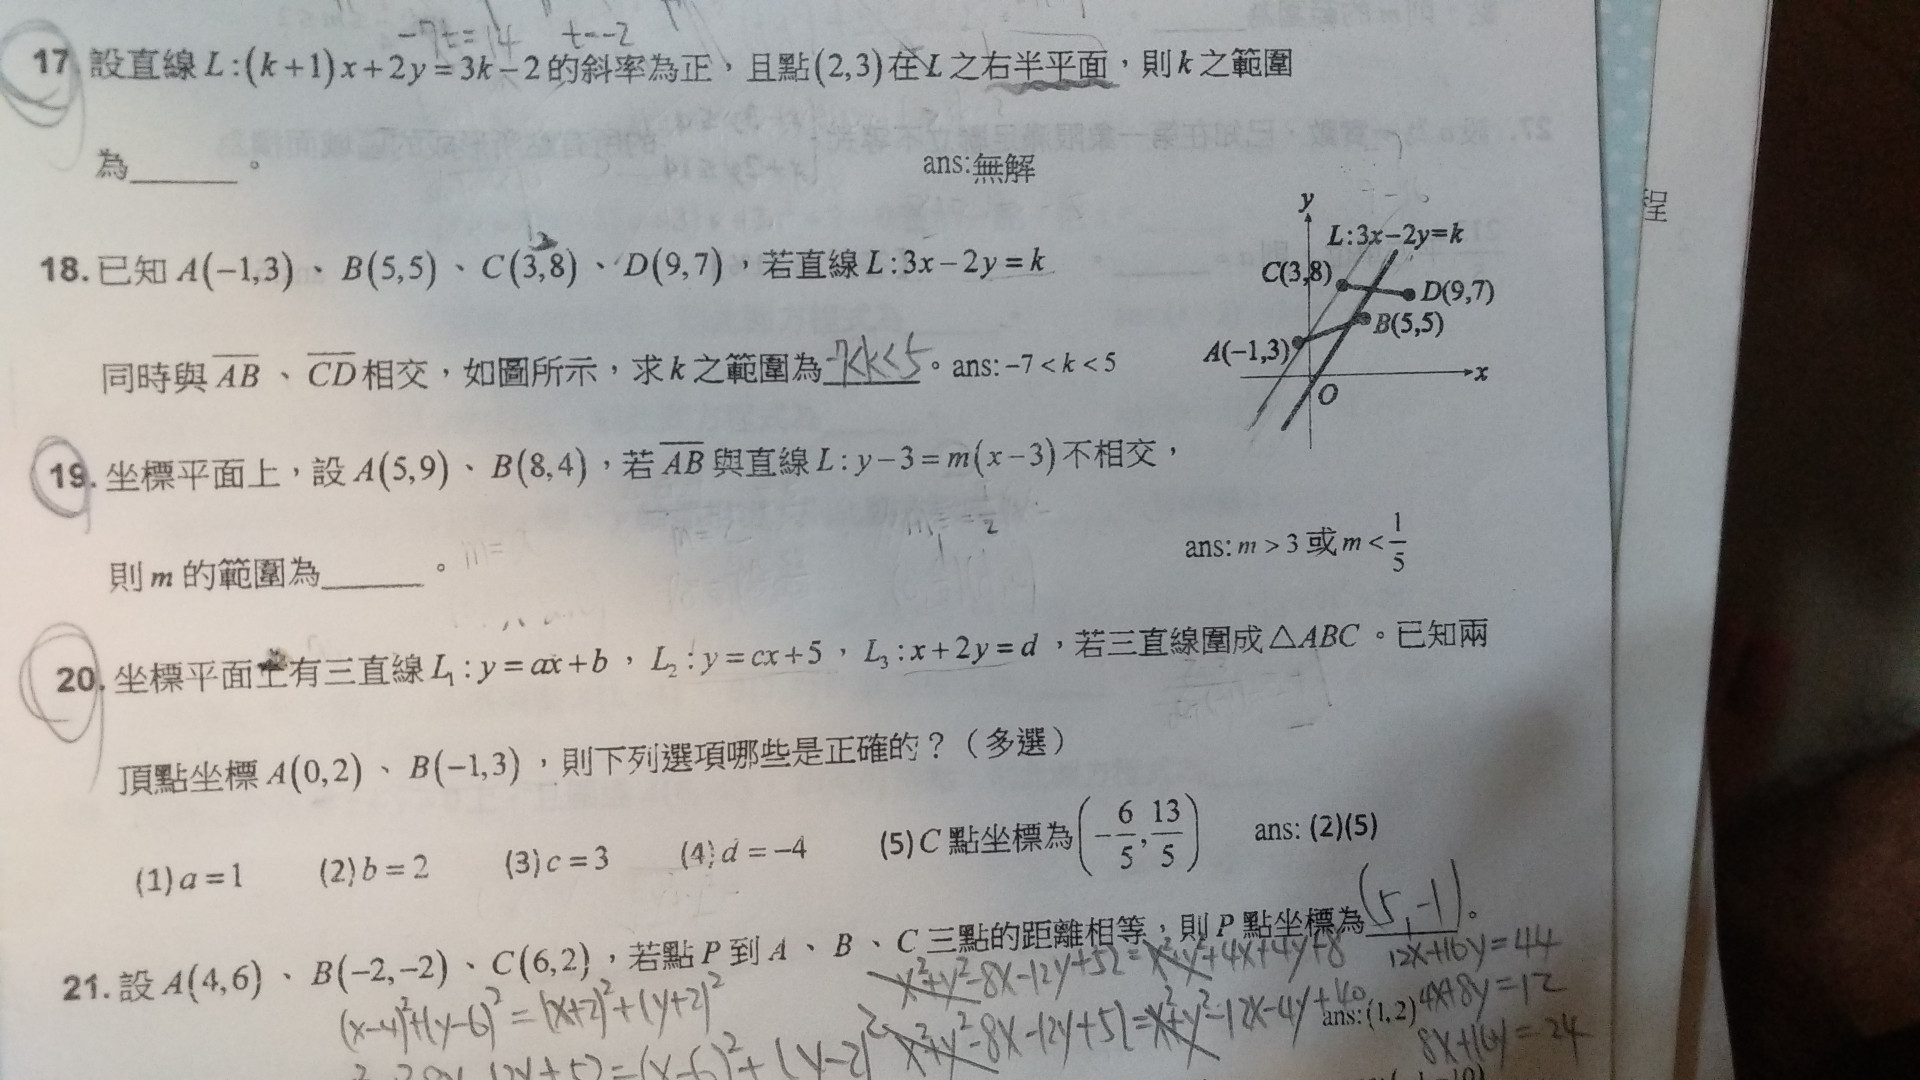 -7t=14 t=-2
17. 設直線 L:(k+1)x+2y=3k-2 的斜率為正，且點(2,3)在 L 之右半平面，則 k 之範圍
為______。 ans:無解
18. 已知 A(-1,3)、B(5,5)、C(3,8)、D(9,7)，若直線 L:3x-2y=k
同時與 AB、CD 相交，如圖所示，求 k 之範圍為 -7<k<5。ans: -7<k<5
y
L:3x-2y=k
C(3,8)
D(9,7)
B(5,5)
A(-1,3)
x
O
程
19. 坐標平面上，設 A(5,9)、B(8,4)，若 AB 與直線 L:y-3=m(x-3)不相交，
則 m 的範圍為______。 ans: m>3 或 m<1/5
20. 坐標平面上有三直線 L₁:y=ax+b，L₂:y=cx+5，L₃:x+2y=d，若三直線圍成△ABC。已知兩
頂點坐標 A(0,2)、B(-1,3)，則下列選項哪些是正確的？（多選）
(1) a=1 (2) b=2 (3) c=3 (4) d=-4 (5) C 點坐標為(-6/5, 13/5) ans: (2)(5)
21. 設 A(4,6)、B(-2,-2)、C(6,2)，若點 P 到 A、B、C 三點的距離相等，則 P 點坐標為(5,-1)。
(x-4)²+(y-6)²=(x+2)²+(y+2)²
x²+y²-8x-12y+52=x²+y²+4x+4y+8
12x+16y=44
x²+y²-8x-12y+52=x²+y²-12x-4y+40
ans:(1,2)
4x+8y=12
8x+16y=24